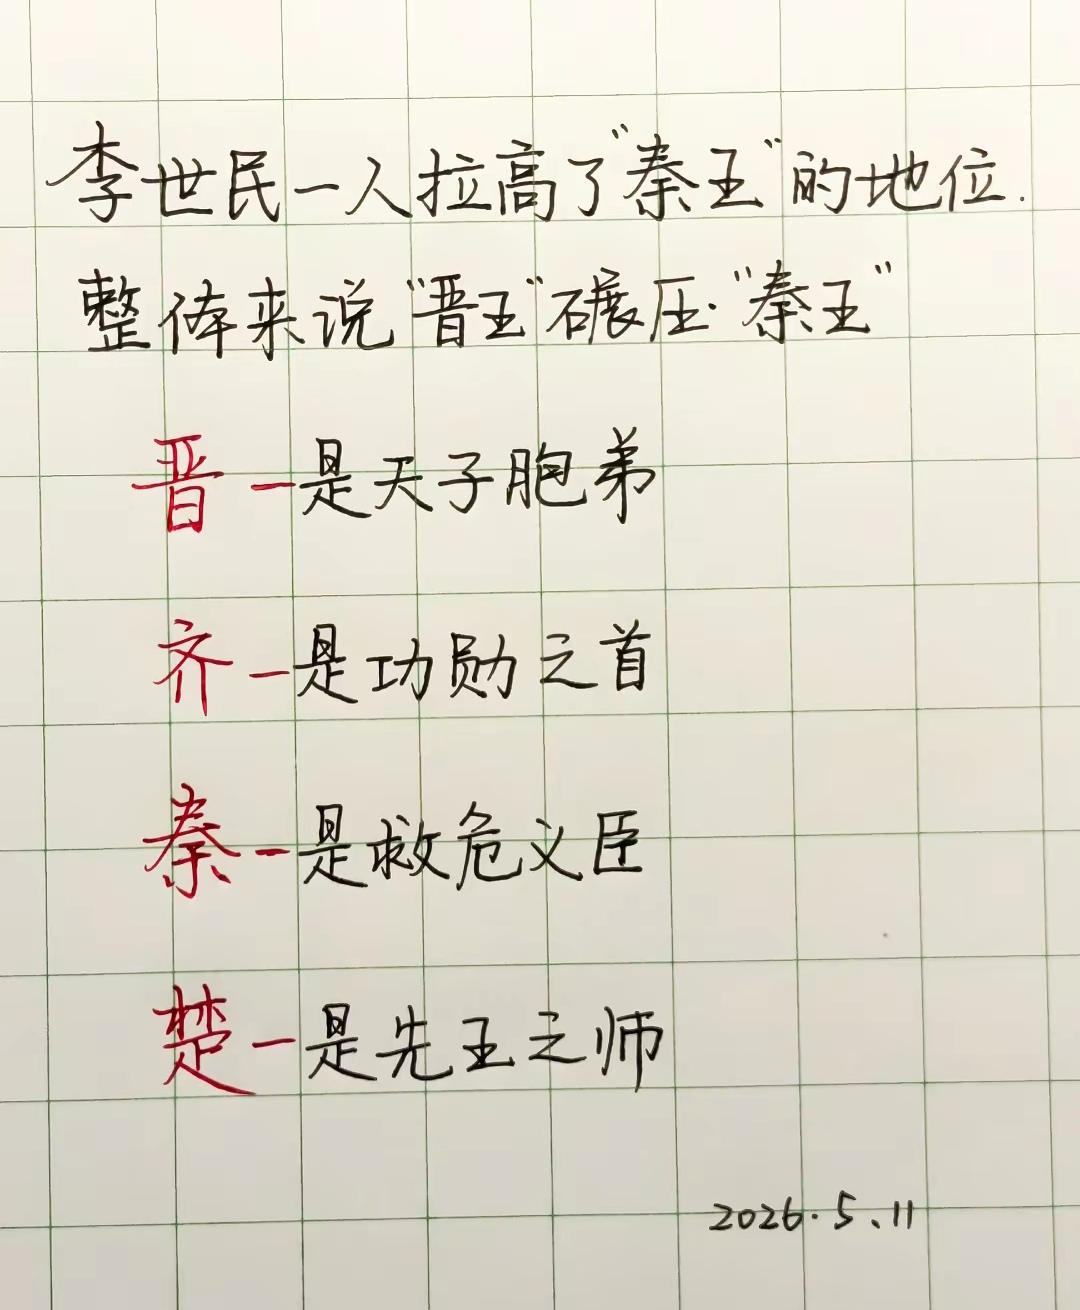 李世民一人拉高了"秦王"的地位.
整体来说"晋王"碾压"秦王"
晋一是天子胞弟
齐一是功勋之首
秦一是救危义臣
楚一是先王之师
2026.5.11